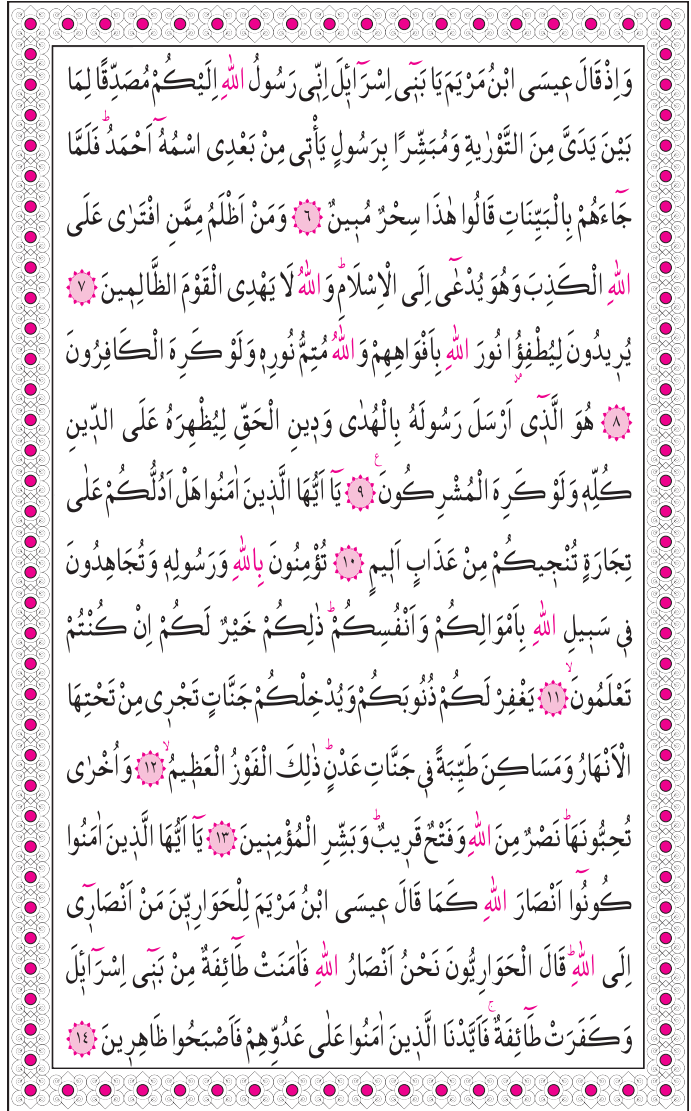 وَاِذْ قَالَ عٖيسَى ابْنُ مَرْيَمَ يَا بَنٖٓى اِسْرَٓائٖلَ اِنّٖى رَسُولُ اللّٰهِ اِلَيْكُمْ مُصَدِّقًا لِمَا
بَيْنَ يَدَىَّ مِنَ التَّوْرٰيةِ وَمُبَشِّرًا بِرَسُولٍ يَأْتٖى مِنْ بَعْدِى اسْمُهُٓ اَحْمَدُؕ فَلَمَّا
جَٓاءَهُمْ بِالْبَيِّنَاتِ قَالُوا هٰذَا سِحْرٌ مُبٖينٌ ﴿٦﴾ وَمَنْ اَظْلَمُ مِمَّنِ افْتَرٰى عَلَى
اللّٰهِ الْكَذِبَ وَهُوَ يُدْعٰٓى اِلَى الْاِسْلَامِؕ وَاللّٰهُ لَا يَهْدِى الْقَوْمَ الظَّالِمٖينَ ﴿٧﴾
يُرٖيدُونَ لِيُطْفِؤُ۫ا نُورَ اللّٰهِ بِاَفْوَاهِهِمْ وَاللّٰهُ مُتِمُّ نُورِهٖ وَلَوْ كَرِهَ الْكَافِرُونَ
﴿٨﴾ هُوَ الَّذٖٓى اَرْسَلَ رَسُولَهُ بِالْهُدٰى وَدٖينِ الْحَقِّ لِيُظْهِرَهُ عَلَى الدّٖينِ
كُلِّهٖۙ وَلَوْ كَرِهَ الْمُشْرِكُونَࣖ ﴿٩﴾ يَٓا اَيُّهَا الَّذٖينَ اٰمَنُوا هَلْ اَدُلُّكُمْ عَلٰى
تِجَارَةٍ تُنْجٖيكُمْ مِنْ عَذَابٍ اَلٖيمٍ ﴿١٠﴾ تُؤْمِنُونَ بِاللّٰهِ وَرَسُولِهٖ وَتُجَاهِدُونَ
فٖى سَبٖيلِ اللّٰهِ بِاَمْوَالِكُمْ وَاَنْفُسِكُمْؕ ذٰلِكُمْ خَيْرٌ لَكُمْ اِنْ كُنْتُمْ
تَعْلَمُونَۙ ﴿١١﴾ يَغْفِرْ لَكُمْ ذُنُوبَكُمْ وَيُدْخِلْكُمْ جَنَّاتٍ تَجْرٖى مِنْ تَحْتِهَا
الْاَنْهَارُ وَمَسَاكِنَ طَيِّبَةً فٖى جَنَّاتِ عَدْنٍؕ ذٰلِكَ الْفَوْزُ الْعَظٖيمُۙ ﴿١٢﴾ وَاُخْرٰى
تُحِبُّونَهَاؕ نَصْرٌ مِنَ اللّٰهِ وَفَتْحٌ قَرٖيبٌؕ وَبَشِّرِ الْمُؤْمِنٖينَ ﴿١٣﴾ يَٓا اَيُّهَا الَّذٖينَ اٰمَنُوا
كُونُٓوا اَنْصَارَ اللّٰهِ كَمَا قَالَ عٖيسَى ابْنُ مَرْيَمَ لِلْحَوَارِيّٖنَ مَنْ اَنْصَارٖٓى
اِلَى اللّٰهِؕ قَالَ الْحَوَارِيُّونَ نَحْنُ اَنْصَارُ اللّٰهِ فَاٰمَنَتْ طَٓائِفَةٌ مِنْ بَنٖٓى اِسْرَٓائٖلَ
وَكَفَرَتْ طَٓائِفَةٌۚ فَاَيَّدْنَا الَّذٖينَ اٰمَنُوا عَلٰى عَدُوِّهِمْ فَاَصْبَحُوا ظَاهِرٖينَ ﴿١٤﴾